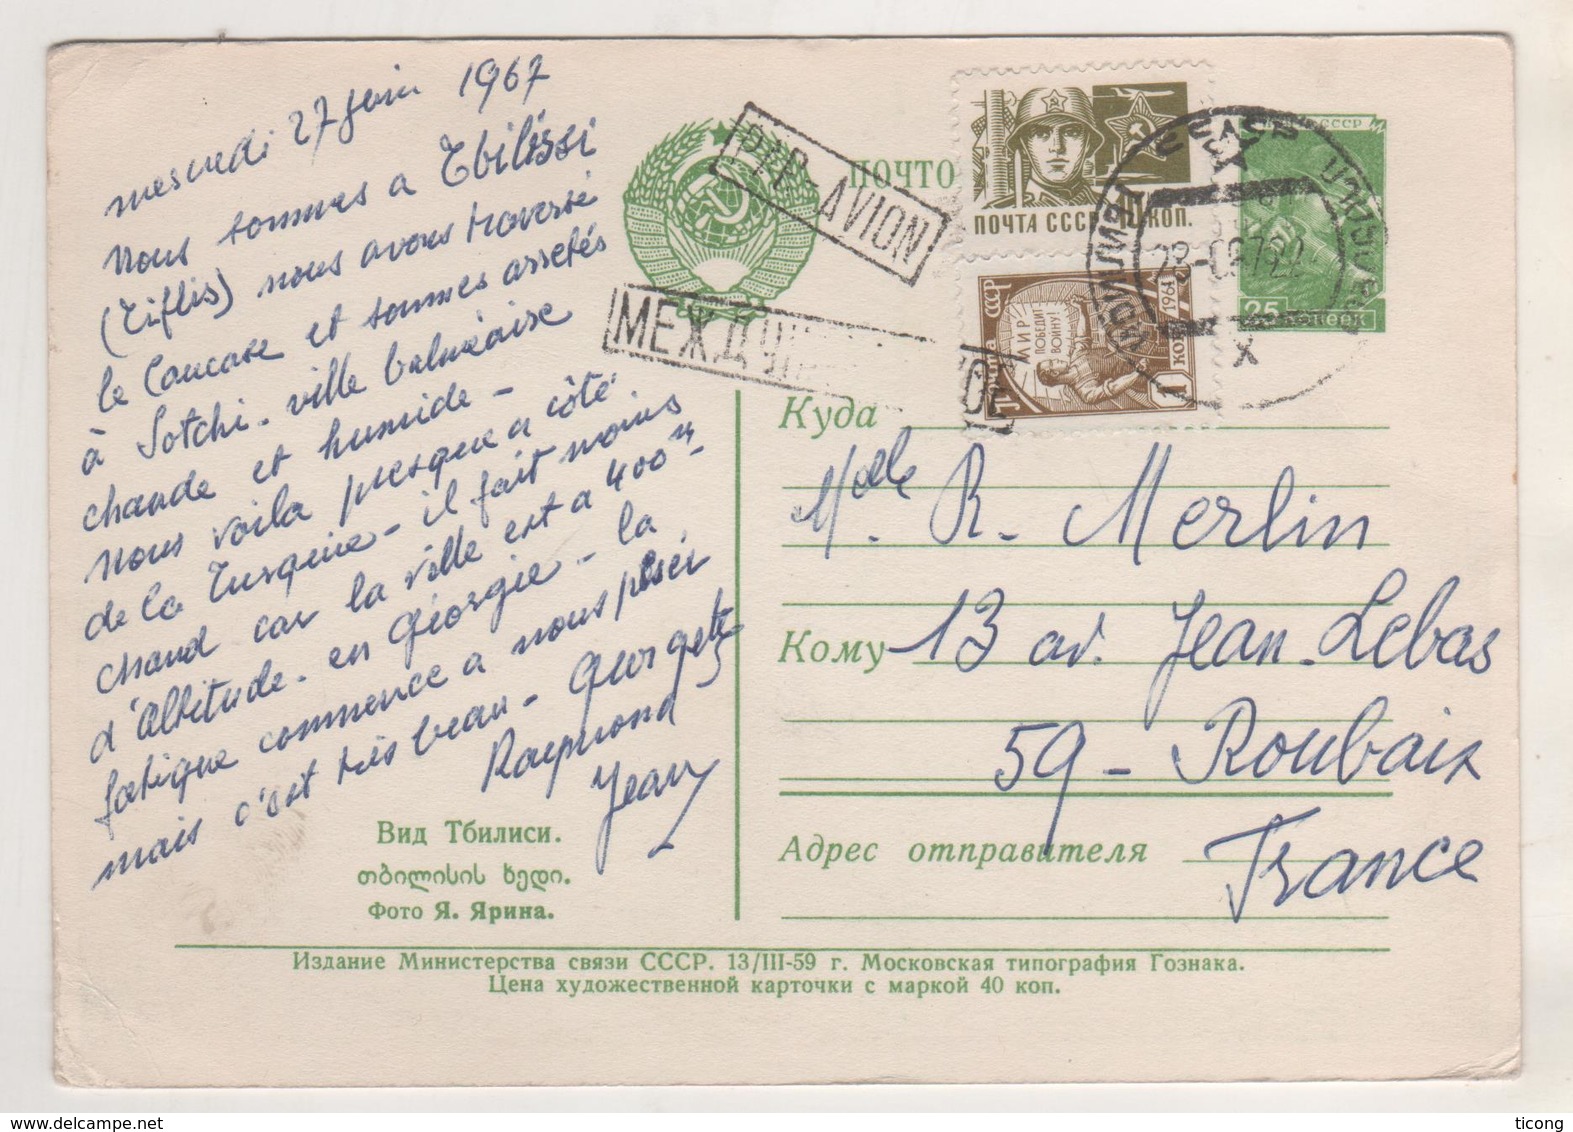 mercredi 27 juin 1967
nous sommes a Tbilissi
(Tiflis) nous avons traversé
le Caucase et sommes arretés
à Sotchi - ville balnéaire
chaude et humide -
nous voila presque a côté
de la Turquie - il fait moins
chaud car la ville est a 400 m -
d'altitude - en Géorgie - la
fatigue commence a nous peser
mais c'est très beau - Georgette
Raymond
Jean
Вид Тбилиси.
თბილისის ხედი.
Фото Я. Ярина.
PAR AVION
МЕЖДУН
ПОЧТО
ПОЧТА СССР 10 КОП.
ПОЧТА СССР
МИР ПОБЕДИТ ВОЙНУ!
1961
1 КОП
СССР
25 КОПЕЕК
Куда
Melle. R. Merlin
Кому 13 av. Jean-Lebas
59 - Roubaix
Адрес отправителя France
Издание Министерства связи СССР. 13/III-59 г. Московская типография Гознака.
Цена художественной карточки с маркой 40 коп.
ticong